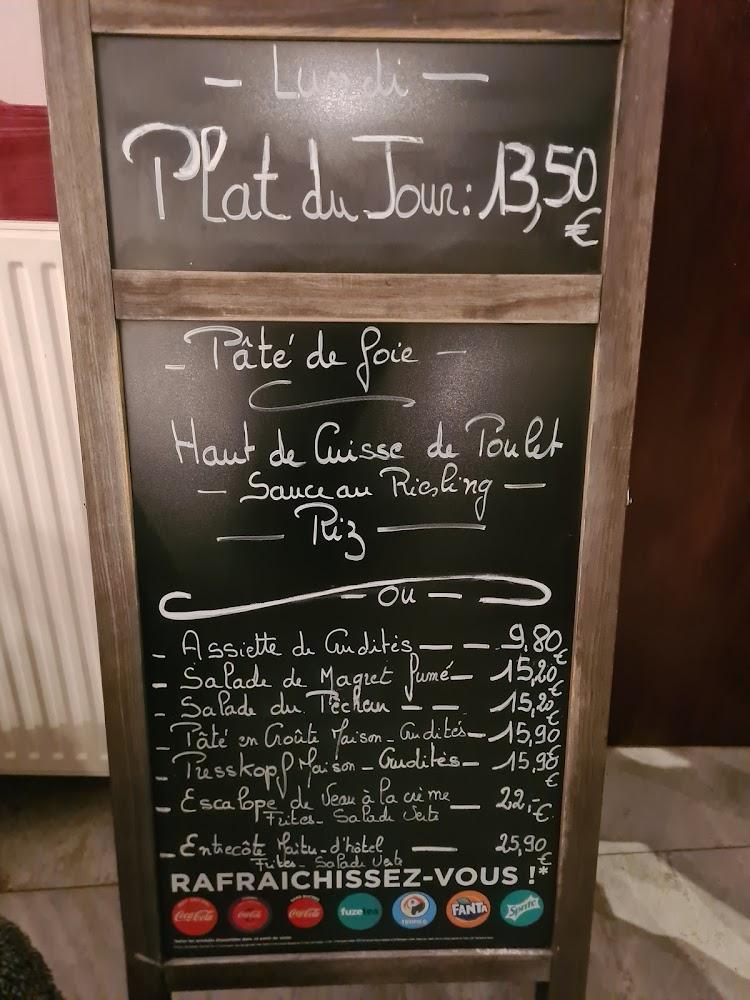 - Lundi -
Plat du Jour: 13,50
€
- Pâté de foie -
Haut de Cuisse de Poulet
- Sauce au Riesling -
- Riz -
- ou -
- Assiette de Crudités - - 9,80 €
- Salade de Magret fumé - 15,20 €
- Salade du Pêcheur - - 15,20 €
- Pâté en Croûte Maison - Crudités - 15,90 €
- Presskopf Maison - Crudités - 15,90 €
- Escalope de Veau à la crème - 22,- €
Frites - Salade Verte
- Entrecôte Maître-d'hôtel - 25,90 €
Frites - Salade Verte
RAFRAICHISSEZ-VOUS !*
Coca-Cola Coca-Cola Coca-Cola fuzetea TROPICO FANTA Sprite